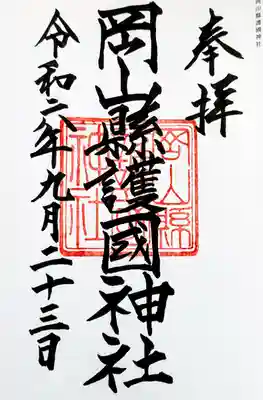 岡山縣護國神社
奉拝
岡山縣護國神社
令和六年九月二十三日
岡山縣
護國
神社